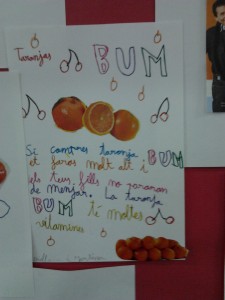 Taronjas BUM
Si compres taronja BUM
et faras molt alt i
els teus fills no pararan
de menjar. La taronja
BUM té moltes
vitamines